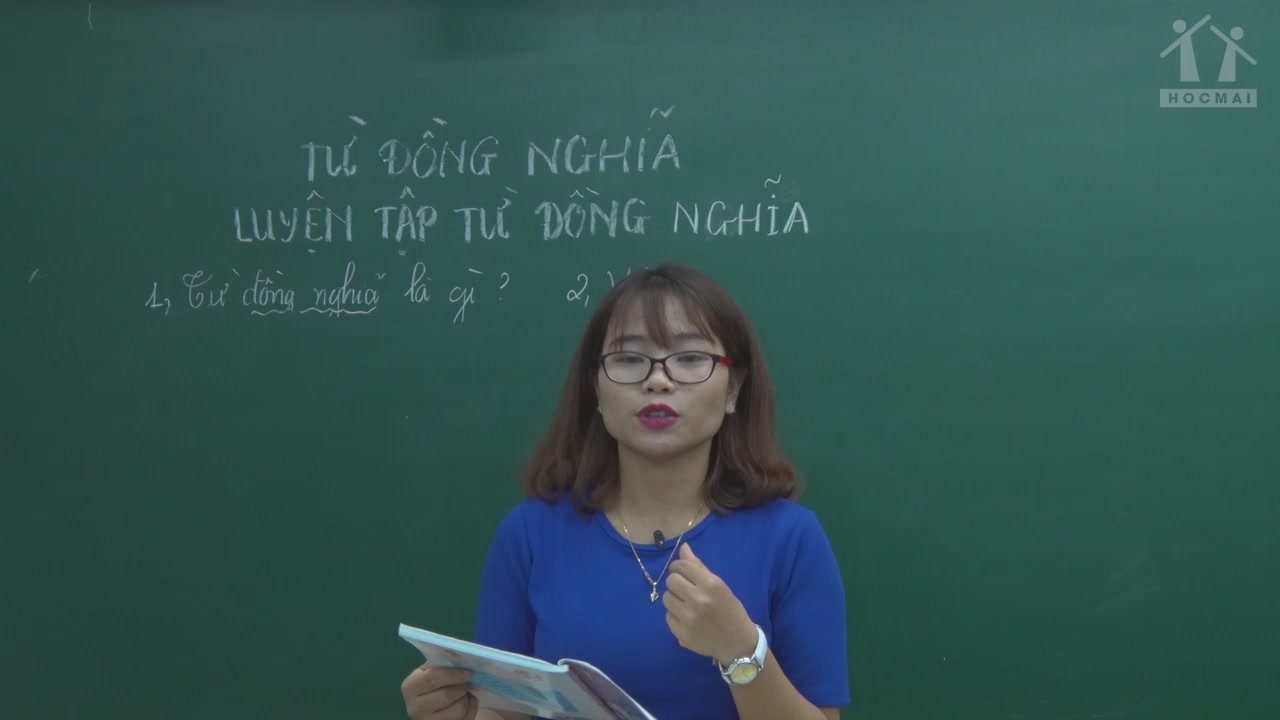 HOCMAI
TỪ ĐỒNG NGHĨA
LUYỆN TẬP TỪ ĐỒNG NGHĨA
1, Từ đồng nghĩa là gì ? 2,